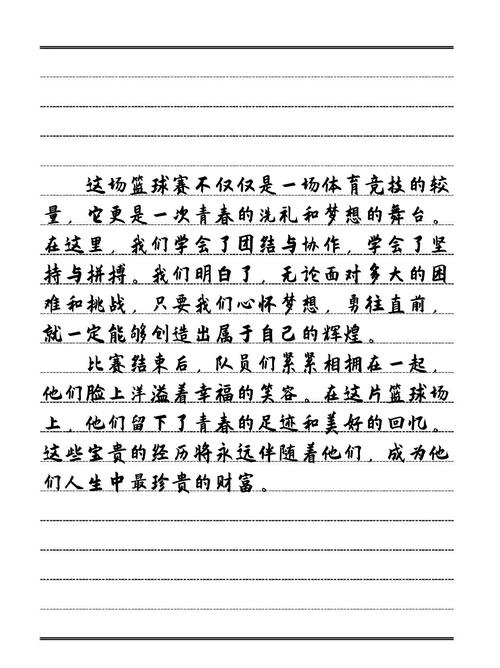 这场篮球赛不仅仅是一场体育竞技的较
量，它更是一次青春的洗礼和梦想的舞台。
在这里，我们学会了团结与协作，学会了坚
持与拼搏。我们明白了，无论面对多大的困
难和挑战，只要我们心怀梦想，勇往直前，
就一定能够创造出属于自己的辉煌。
比赛结束后，队员们紧紧相拥在一起，
他们脸上洋溢着幸福的笑容。在这片篮球场
上，他们留下了青春的足迹和美好的回忆。
这些宝贵的经历将永远伴随着他们，成为他
们人生中最珍贵的财富。